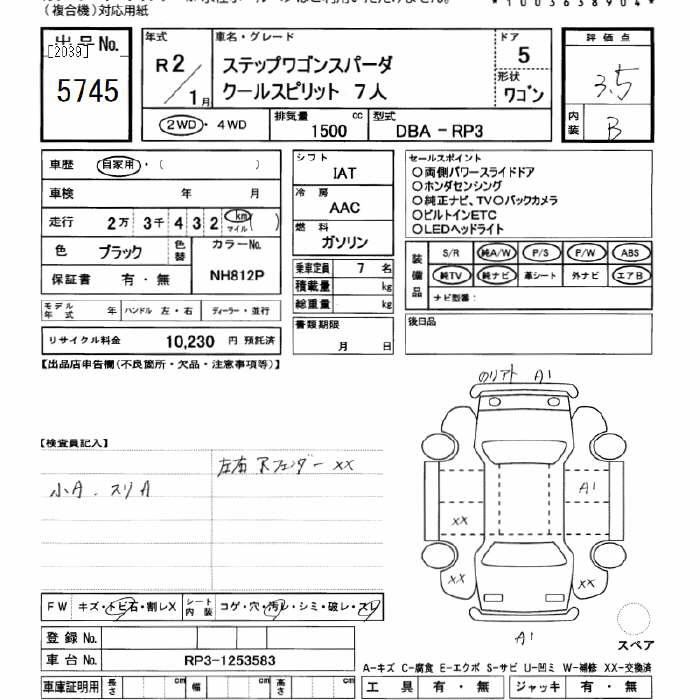 （複合機）対応用紙
*1003638904*
出品No.
[2039]
5745
年式
R2/1月
車名・グレード
ステップワゴンスパーダ
クールスピリット 7人
ドア
5
形状
ワゴン
評価点
3.5
内装
B
2WD・4WD
排気量
1500 cc
型式
DBA-RP3
車歴 自家用・（ ）
車検 年 月
走行 2万 3千 4 3 2 km マイル ( )
色 ブラック 色替
カラーNo.
NH812P
保証書 有・無
モデル年式 年 ハンドル 左・右 ディーラー・並行
リサイクル料金 10,230 円 預託済
シフト
IAT
冷房
AAC
燃料
ガソリン
乗車定員 7 名
積載量 kg
総重量 kg
書類期限
月 日
セールスポイント
○両側パワースライドドア
○ホンダセンシング
○純正ナビ、TV○バックカメラ
○ビルトインETC
○LEDヘッドライト
装備品
S/R 純A/W P/S P/W ABS
純TV 純ナビ 革シート 外ナビ エアB
ナビ型番：
後日品
【出品店申告欄(不良箇所・欠品・注意事項等)】
【検査員記入】
小A.スリA
左右Rフェンダー XX
のリアト A1
A1
XX
XX
XX
A1
スペア
FW キズ・トビ石・割レX
シート内装 コゲ・穴・汚レ・シミ・破レ・スレ
登録No.
車台No. RP3-1253583
車庫証明用 長さ cm 幅 cm 高さ cm
A-キズ C-腐食 E-エクボ S-サビ U-凹ミ W-補修 XX-交換済
工具 有・無 ジャッキ 有・無